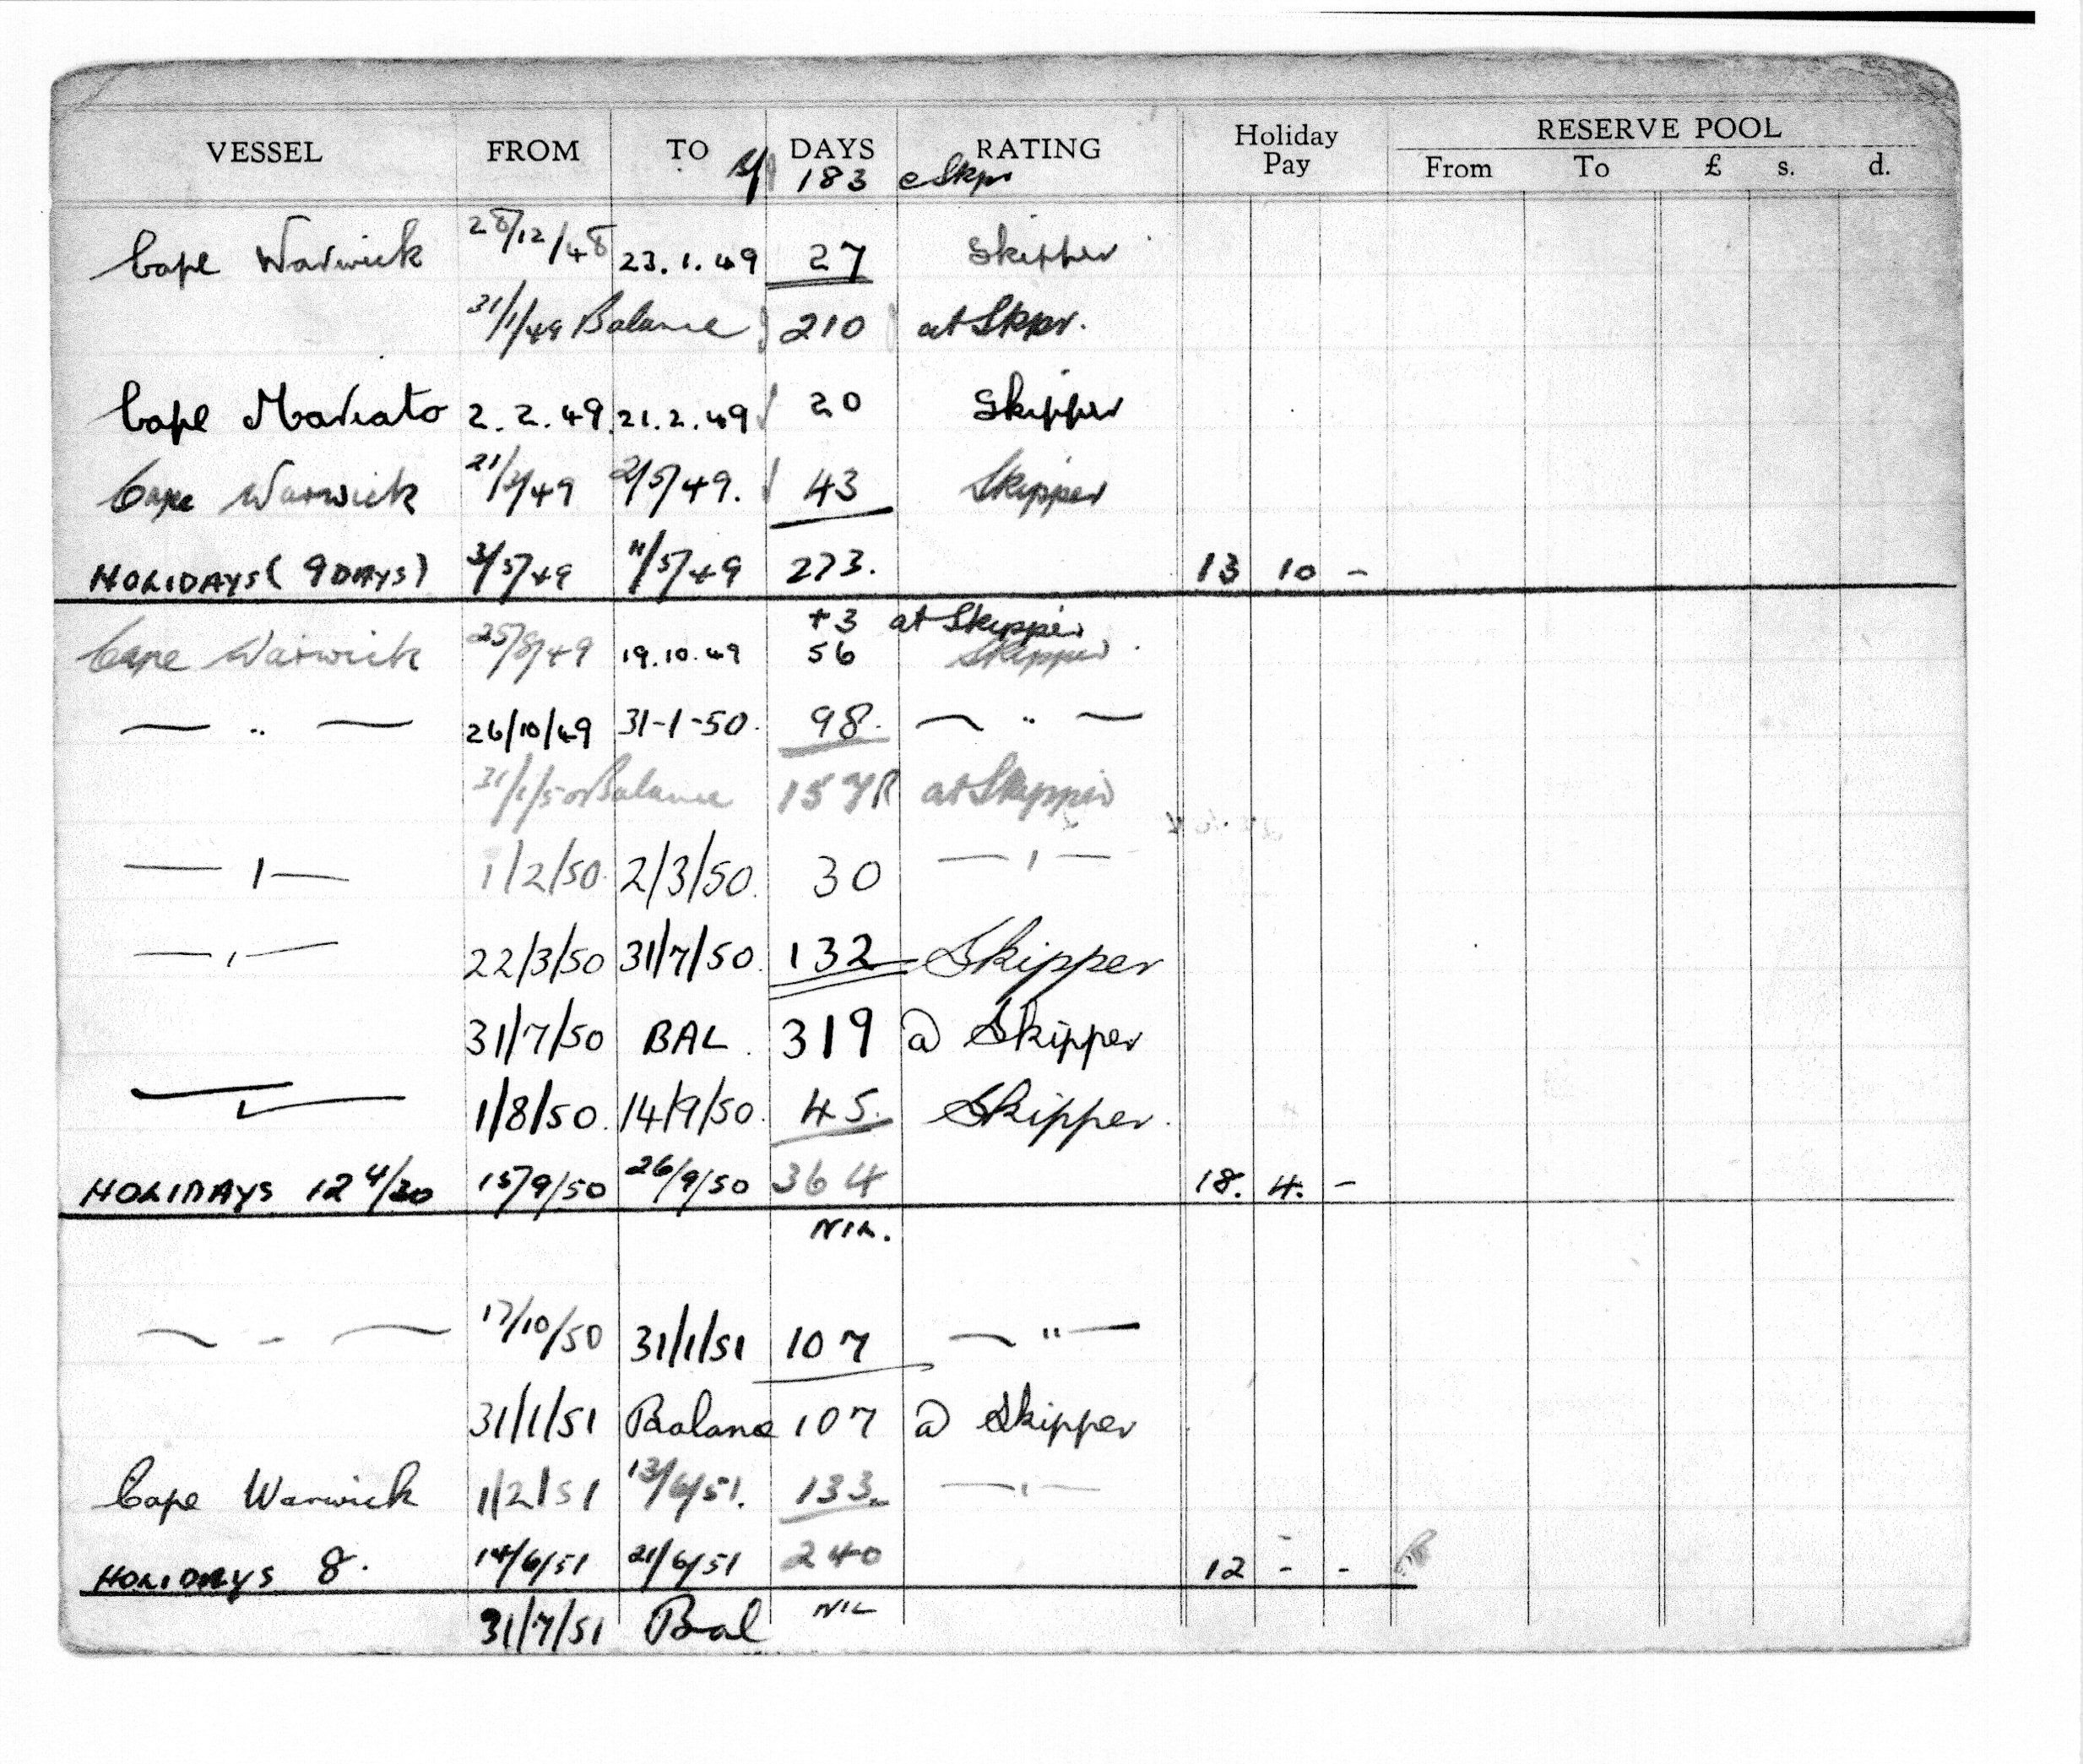 VESSEL FROM TO DAYS RATING Holiday Pay RESERVE POOL
From To £ s. d.
183 Skpr
Cape Warwick 28/12/48 23.1.49 27 Skipper
31/1/49 Balance 210 at Skpr.
Cape Mariato 2.2.49. 21.2.49 20 Skipper
Cape Warwick 21/3/49 2/5/49. 43 Skipper
HOLIDAYS ( 9 DAYS) 3/5/49 11/5/49 273. 13 10 -
+3 at Skipper
Cape Warwick 25/8/49 19.10.49 56 Skipper
— " — 26/10/49 31-1-50. 98. — " —
31/1/50 Balance 157 at Skipper
— " — 1/2/50. 2/3/50. 30 — " —
— " — 22/3/50 31/7/50. 132 Skipper
31/7/50 BAL. 319 @ Skipper
— " — 1/8/50. 14/9/50. 45. Skipper.
HOLIDAYS 12 4/30 15/9/50 26/9/50 364 18. 4. -
NIL.
— " — 17/10/50 31/1/51 107 — " —
31/1/51 Balance 107 @ Skipper
Cape Warwick 1/2/51 13/6/51. 133 — " —
HOLIDAYS 8. 14/6/51 21/6/51 240 12 - -
31/7/51 Bal NIL